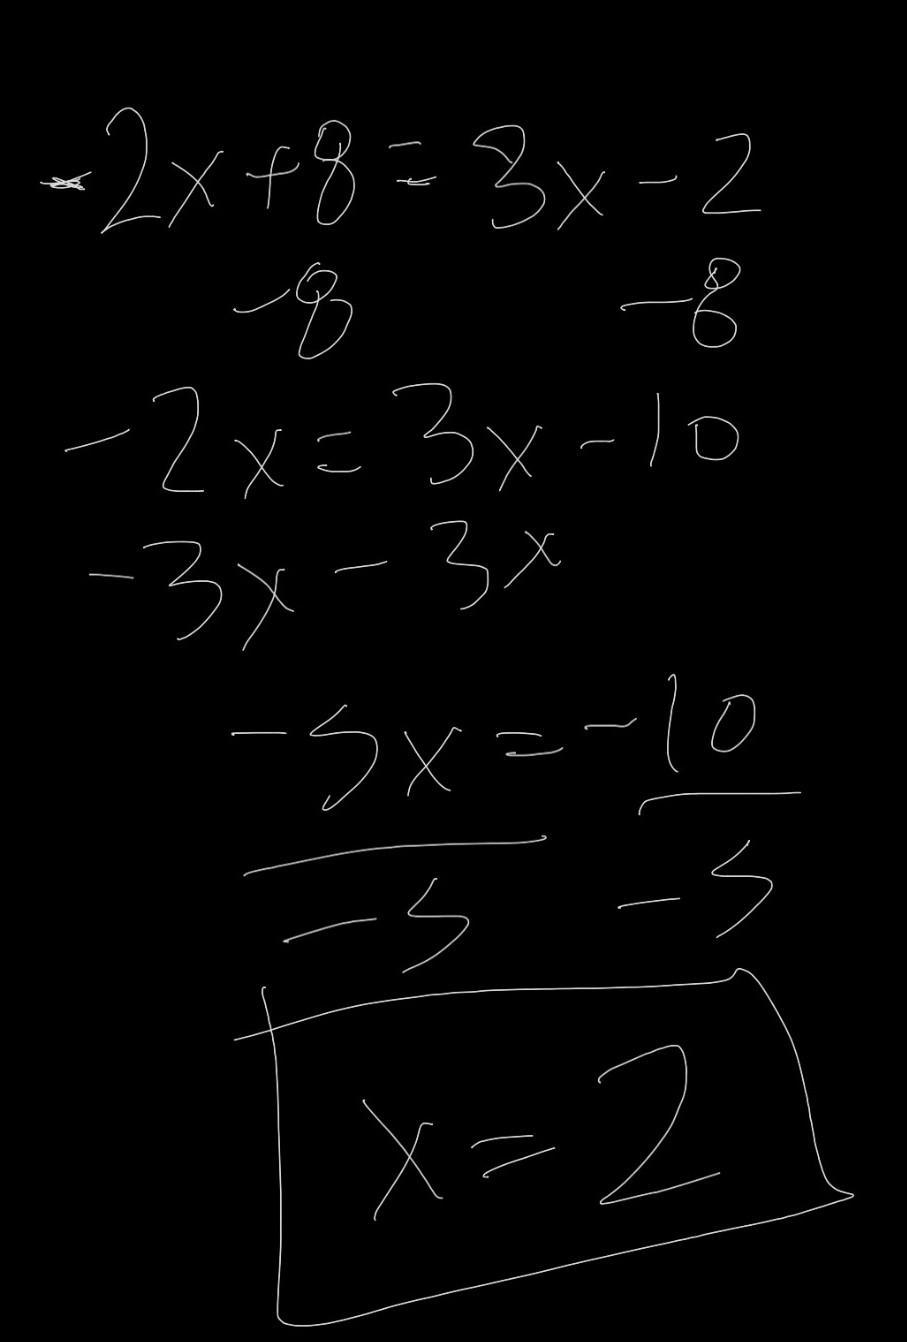 -2x+8=3x-2
-8 -8
-2x=3x-10
-3x-3x
-5x=-10
-5 -5
x=2